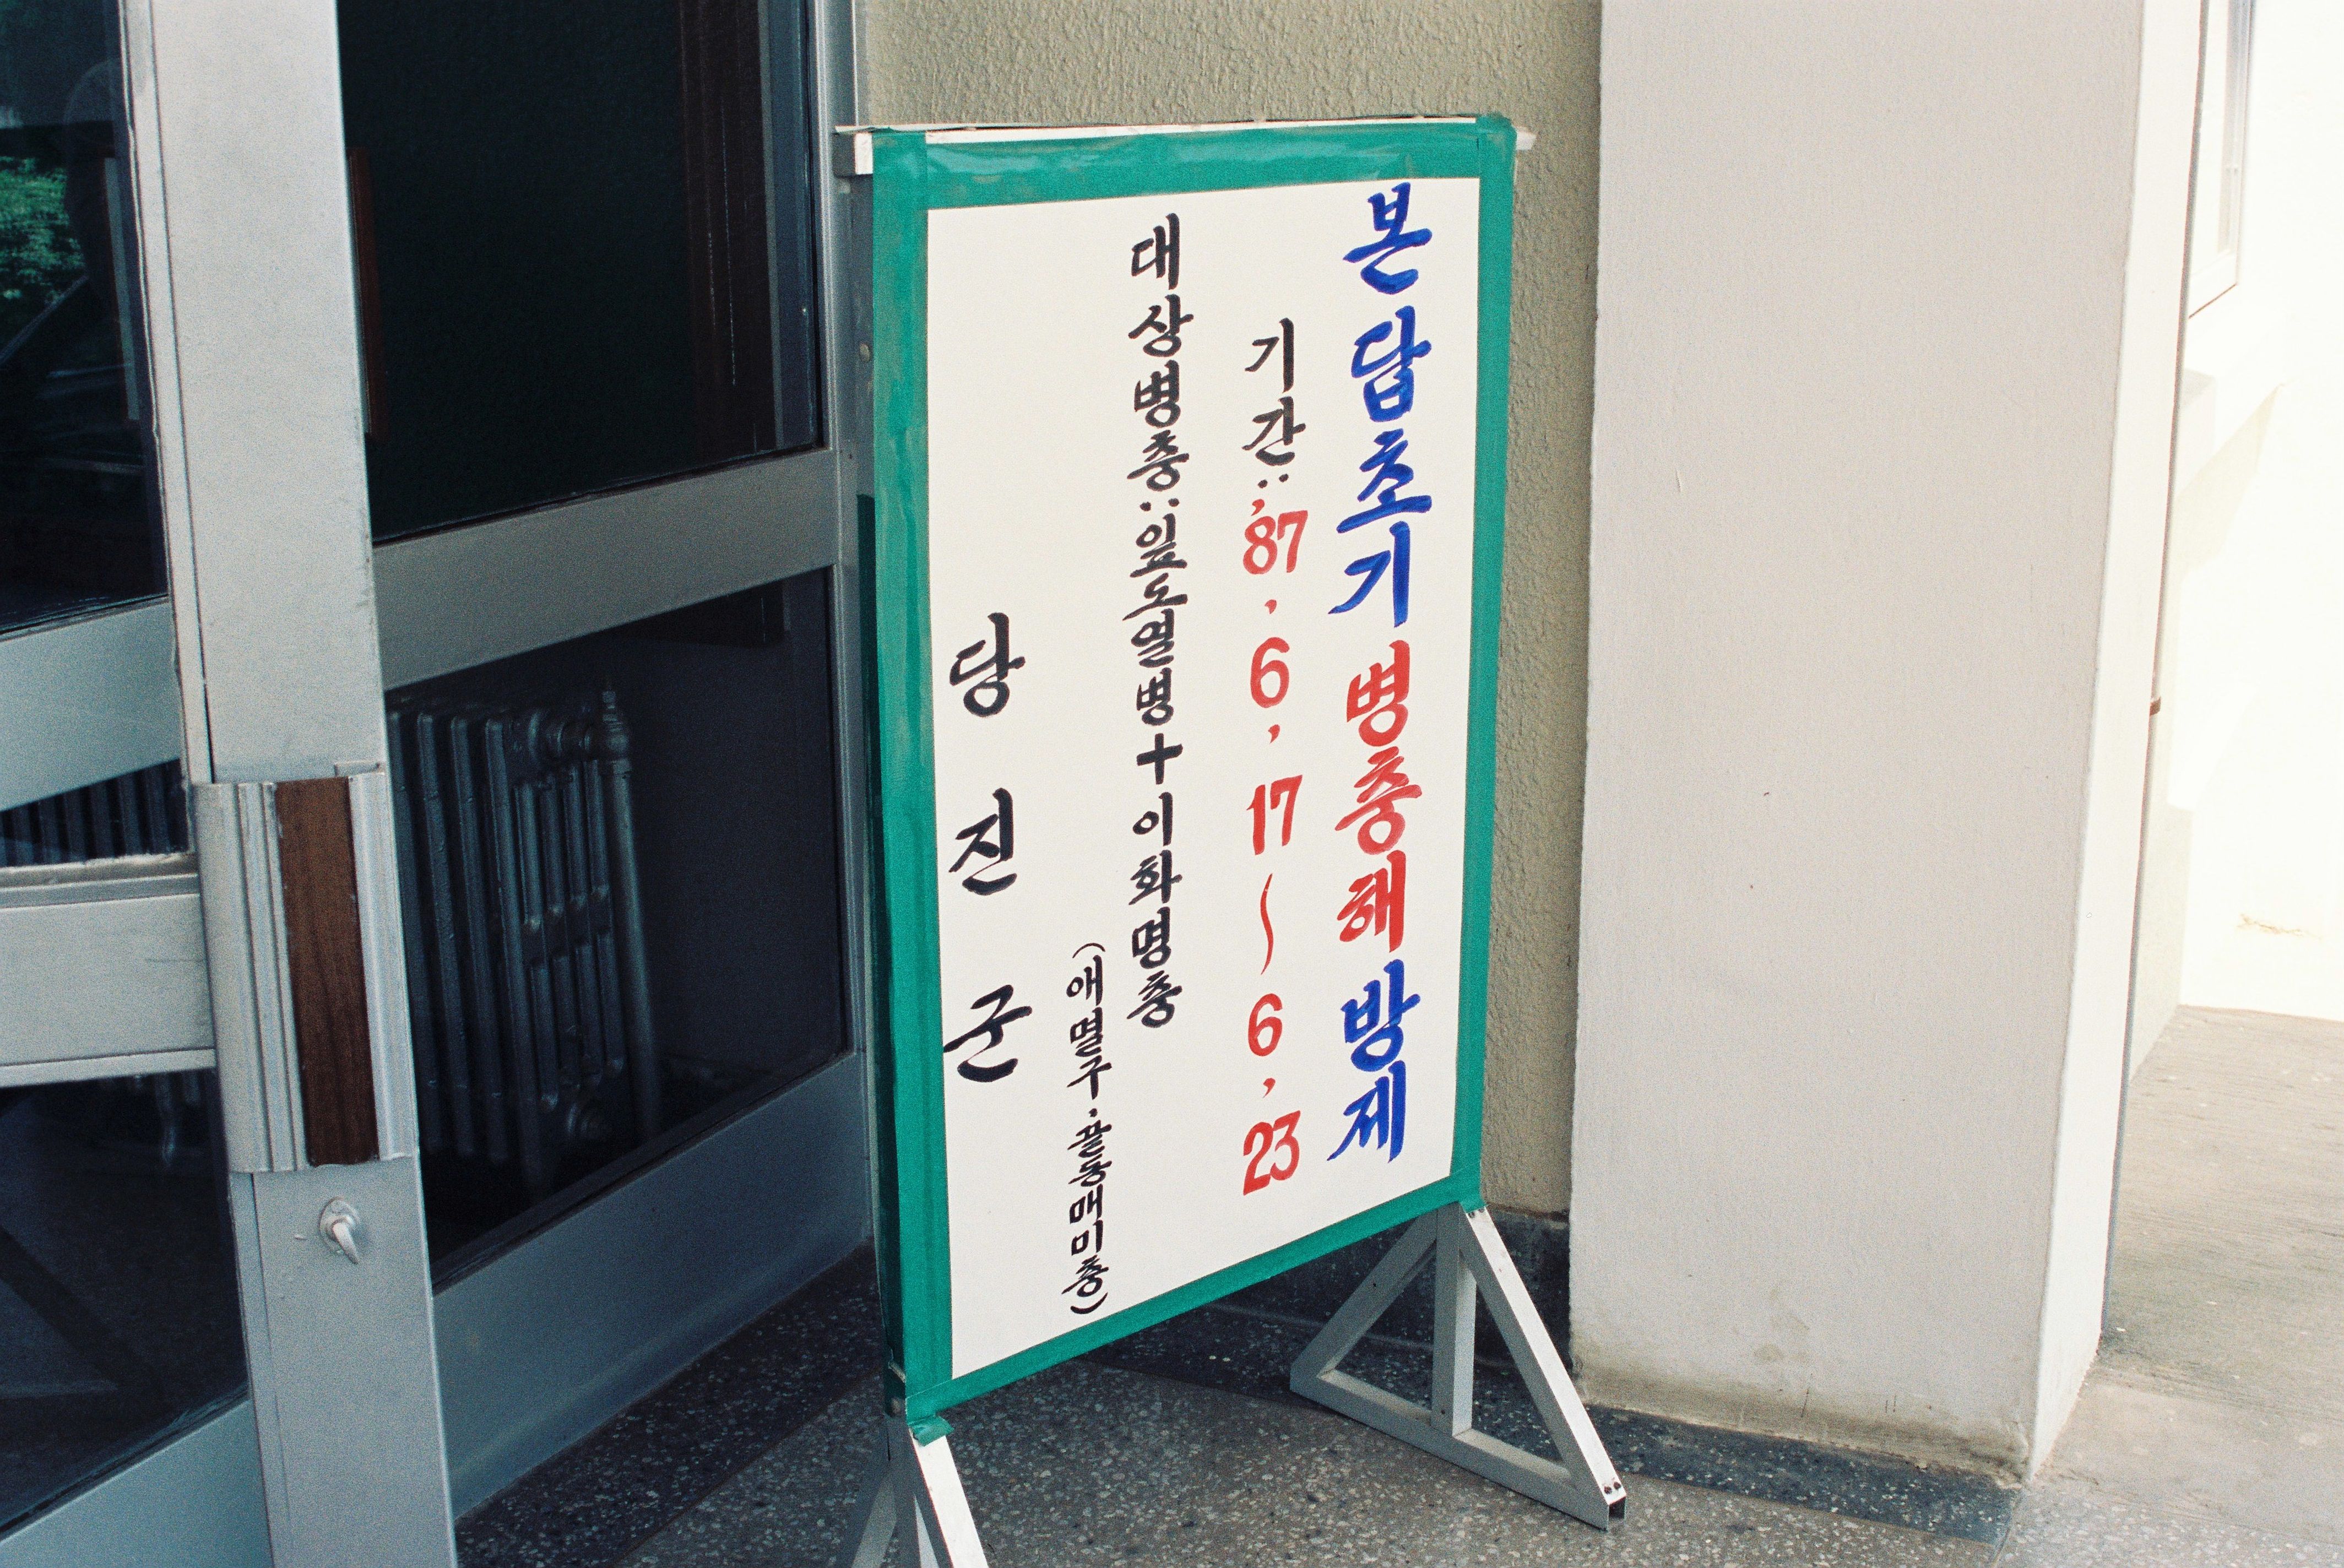 본답초기 병충해 방제
기간 : '87. 6. 17 ~ 6. 23
대상병충 : 잎도열병 + 이화명충
(애멸구·끝동매미충)
당진군